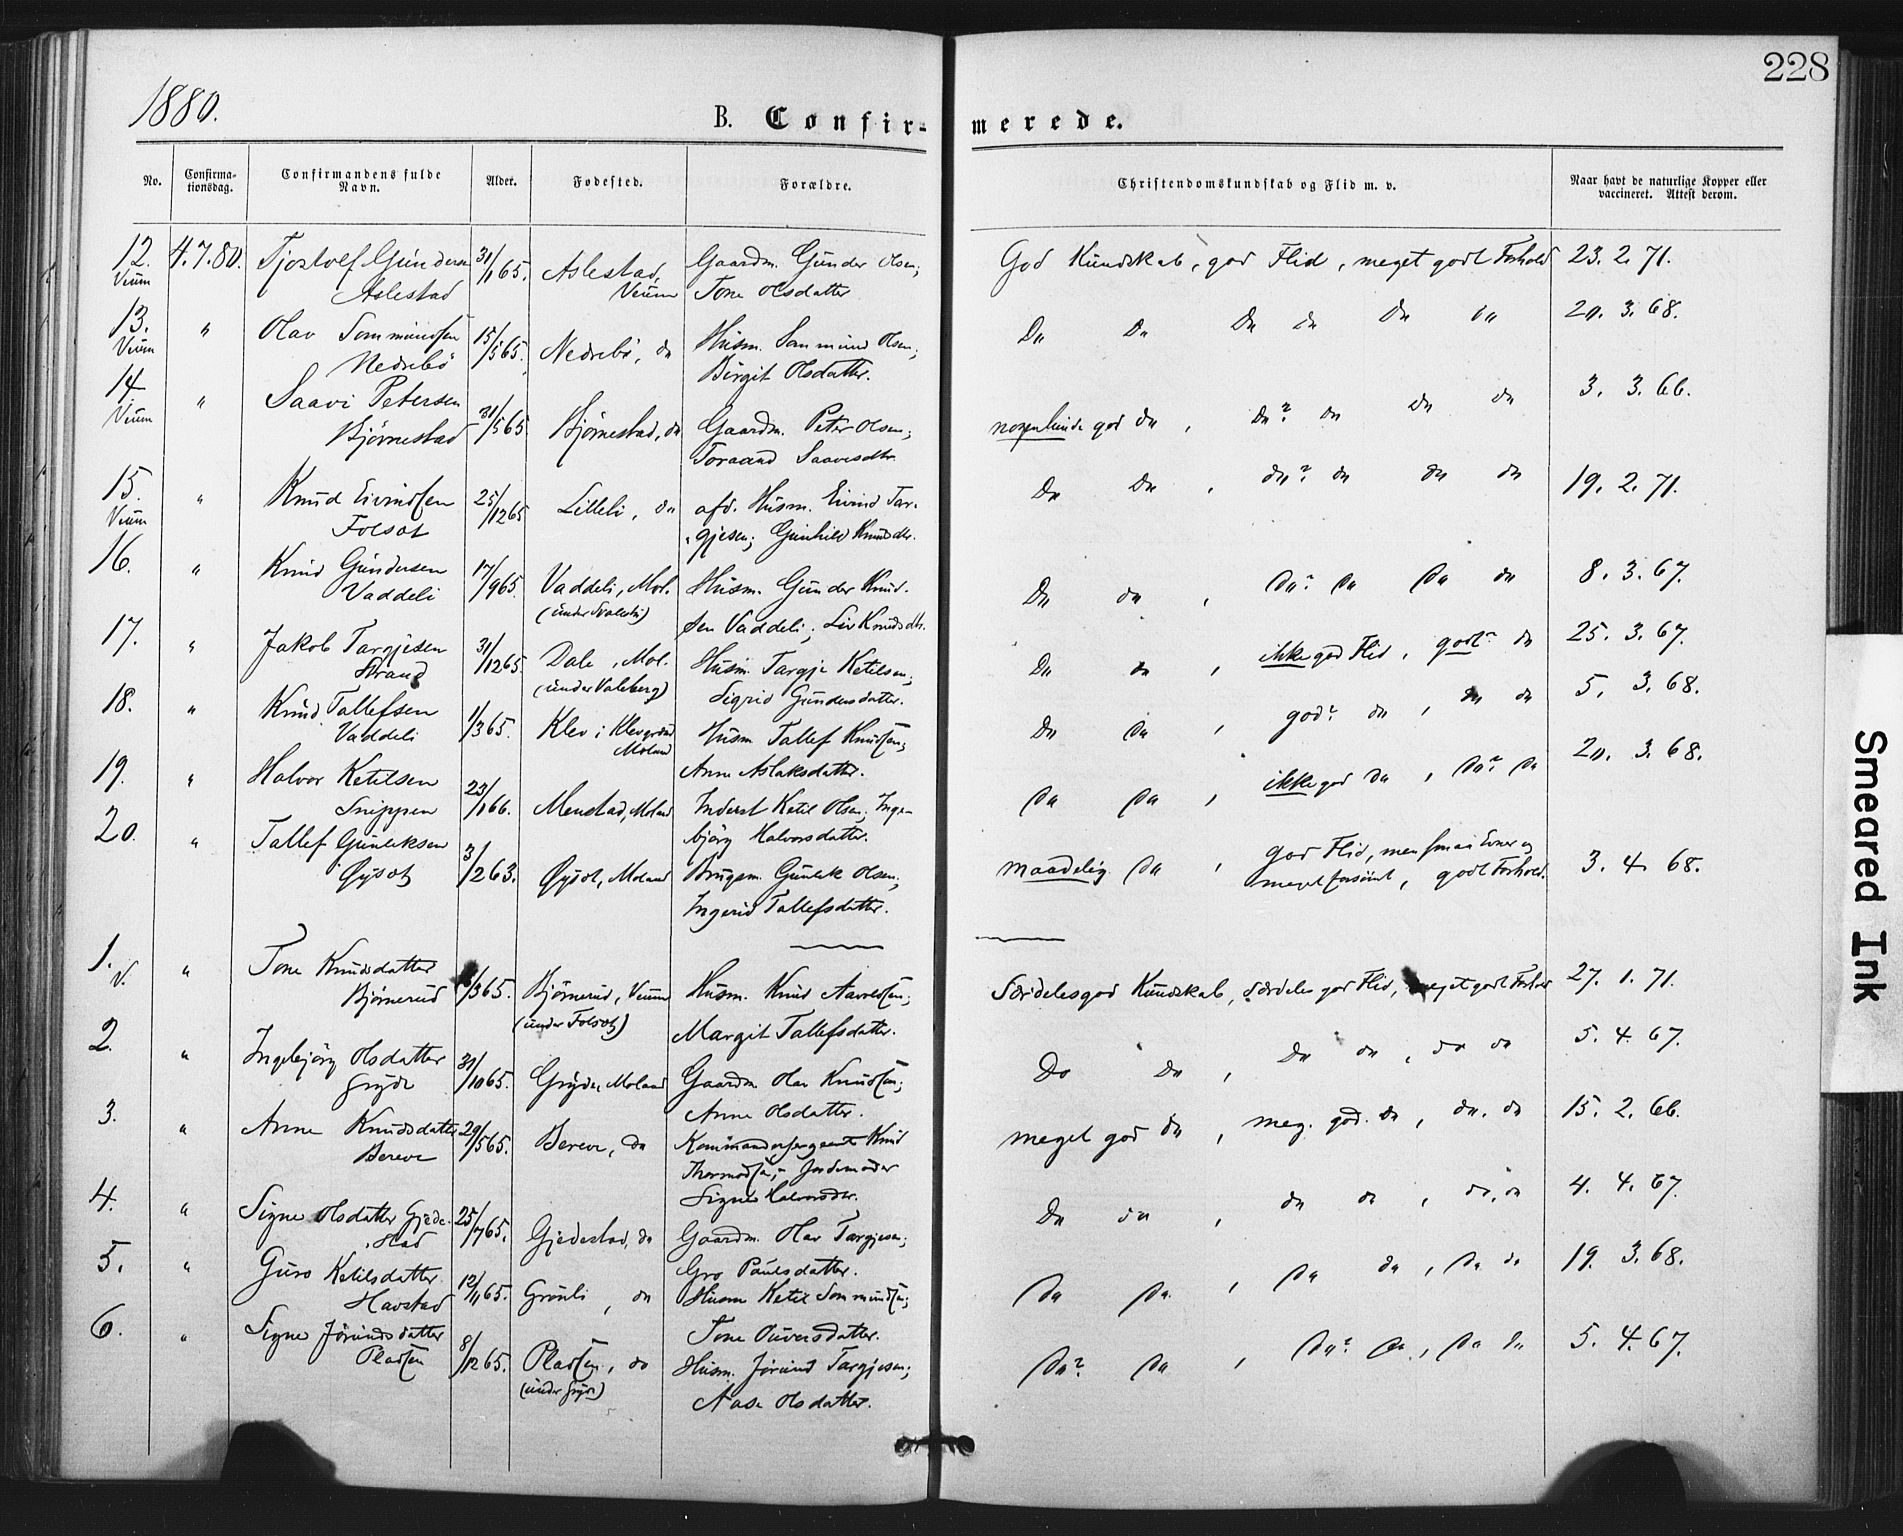 228
1880.
B. Confir-merede.
No. Confirma-tionsdag. Confirmandens fulde Navn. Alder. Fødested. Forældre. Christendomskundskab og Flid m. v. Naar havt de naturlige Kopper eller vaccineret. Attest derom.
12. 4.7.80. Tjostolf Gunders 31/1 65. Aslestad, Gaardm. Gunder Olsen; God Kundskab, god Flid, meget godt Forhold 23. 2. 71.
Veum Aslestad Veum Tone Olsdatter
13. " Olav Sommundsen 15/5 65. Nedrebö, do Husm. Sommund Olsen; Do Do Do do Do do 20. 3. 68.
Veum Nedrebö Birgit Olsdatter.
14. " Saavi Petersen 31/5 65. Bjørnestad, do Gaardm. Peter Olsen; nogenlunde god do, do? do do do 3. 3. 66.
Veum Bjørnestad Toraand Saavesdtr.
15. " Knud Eivindsen 25/12 65 Lilleli, do afd. Husm. Eivind Tar- Do Do, do? do do do 19. 2. 71.
Veum Folsot gjesen; Gunhild Knudsdtr.
16. " Knud Gundersen 17/9 65. Vaddeli, Mol. Husm. Gunder Knud- Do do, do? do do do 8. 3. 67.
Vaddeli (under Svalestu) sen Vaddeli; Liv Knudsdtr.
17. " Jakob Targjesen 31/12 65. Dale, Mol. Husm. Targje Ketilsen; Do do, ikke god Flid, godt? do 25. 3. 67.
Strand (under Valeberg) Sigrid Gundersdatter.
18. " Knud Tallefsen 1/3 65. Klev i Klevgrend Husm Tallef Knudsen; Do do, god? do, do do 5. 3. 68.
Vaddeli Moland Anne Aslaksdatter.
19. " Halvor Ketilsen 23/1 66. Menstad, Moland Inderst Ketil Olsen, Inge- do do, ikke god do, do? do 20. 3. 68.
Snippen björg Halvorsdatter.
20. " Tallef Gunleksen 3/2 63. Øysot, Moland Brugsm. Gunlek Olsen; maadelig do, god Flid, men smaa Evner og 3. 4. 68.
Øysot Ingerid Tallefsdatter. meget forsömt, godt Forhold.
1. " Tone Knudsdatter /3 65. Bjørnerud, Veum Husm. Knud Aavesen; Særdelesgod Kundskab, særdeles god Flid, meget godt Forhold 27. 1. 71.
V. Bjørnerud (under Folsot) Margit Tallefsdatter.
2. " Ingebjörg Olsdatter 31/10 65. Gryde, Moland Gaardm Olav Knudsen; Do Do, Do do, do do 5. 4. 67.
Gryde Anne Olsdatter.
3. " Anne Knudsdatter 29/5 65. Bereve, do Kommandersergeant Knud meget god do, meg. god. do, do. do 15. 2. 66.
Bereve Thormodsen, Jordemoder
Signe Halvorsdtr.
4. " Signe Olsdatter Gjede- 25/7 65. Gjedestad, do Gaardm. Olav Targjesen; Do do, do do, do, do 4. 4. 67.
stad Gro Paulsdatter.
5. " Guro Ketilsdatter 12/11 65. Grönli, do Husm Ketil Sommundsen; do do, do do, do do 19. 3. 68.
Havstad Tone Olversdatter.
6. " Signe Jörundsdatter 8/12 65. Pladsen, do Husm. Jörund Targjesen; do? do, do? do, do do 5. 4. 67.
Pladsen (under Gryde) Aase Olsdatter.
Smeared Ink